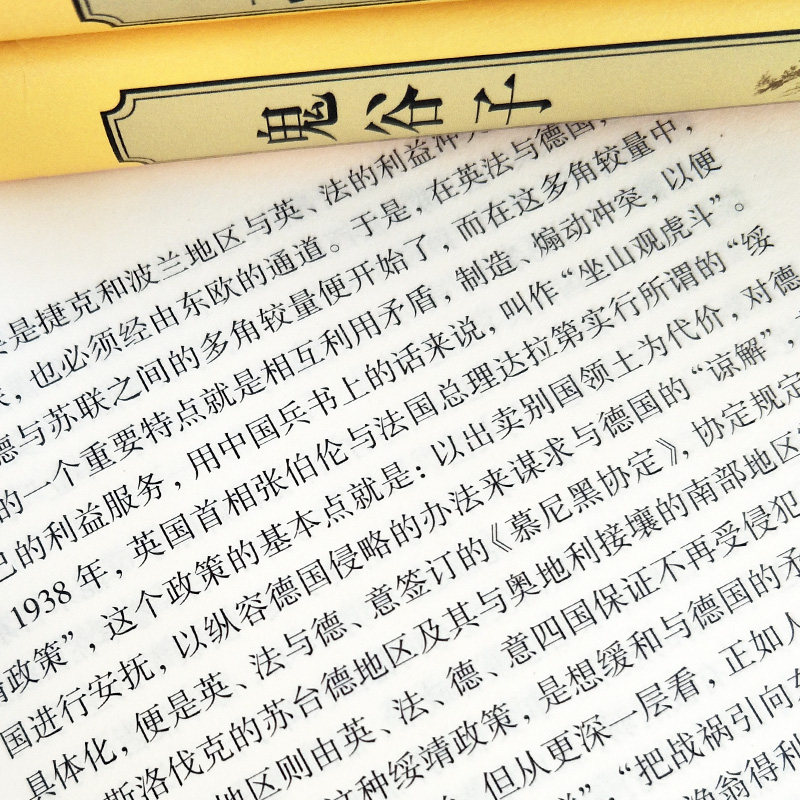 鬼谷子
是捷克和波兰地区与英、法的利益冲
，也必须经由东欧的通道。于是，在英法与德国，
德与苏联之间的多角较量便开始了，而在这多角较量中，
的一个重要特点就是相互利用矛盾，制造、煽动冲突，以便
己的利益服务，用中国兵书上的话来说，叫作“坐山观虎斗”。
1938年，英国首相张伯伦与法国总理达拉第实行所谓的“绥
靖政策”，这个政策的基本点就是：以出卖别国领土为代价，对德
国进行安抚，以纵容德国侵略的办法来谋求与德国的“谅解”，
具体化，便是英、法与德、意签订的《慕尼黑协定》，协定规定
斯洛伐克的苏台德地区及其与奥地利接壤的南部地区
地区则由英、法、德、意四国保证不再受侵犯
这种绥靖政策，是想缓和与德国的矛
但从更深一层看，正如人
“把战祸引向
渔翁得利